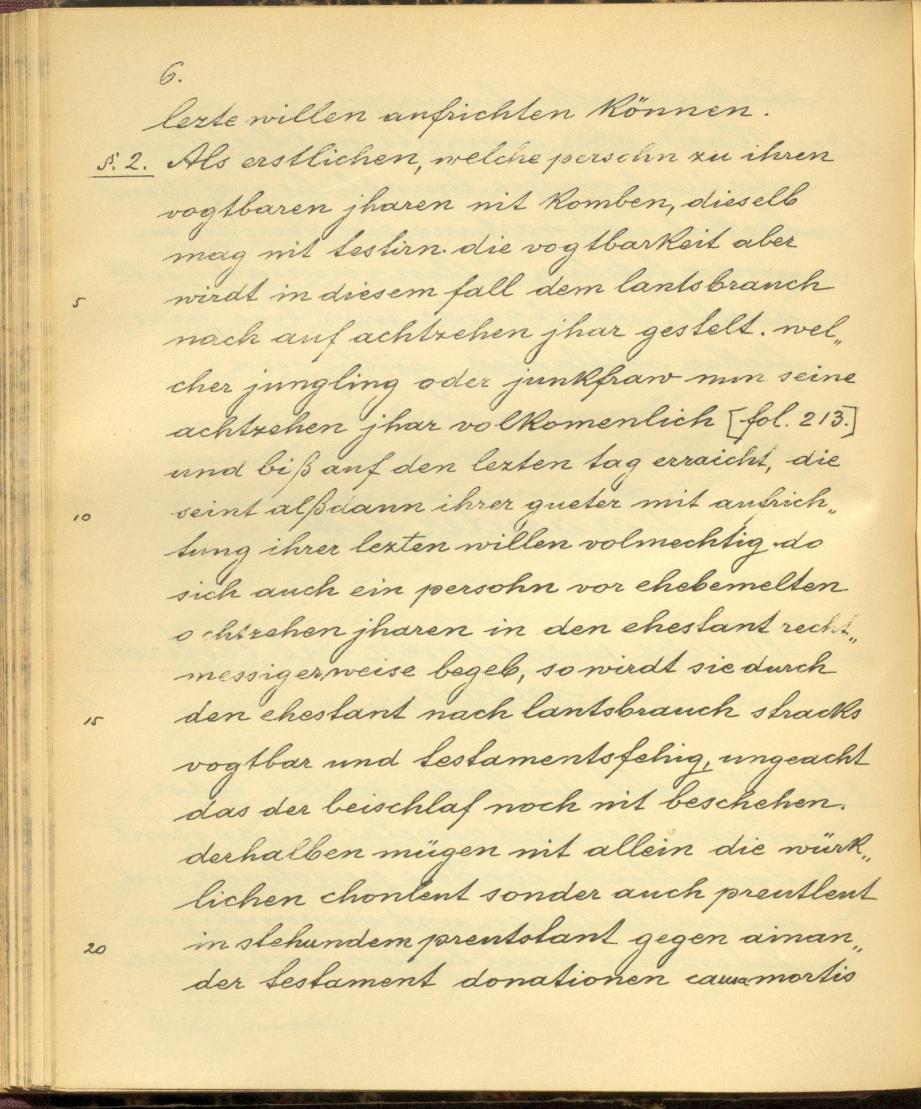 6.
lezte willen aufrichten können.
§. 2. Als erstlichen, welche persohn zu ihren
vogtbaren jharen nit komben, dieselb
mag nit testirn. die vogtbarkeit aber
5 wirdt in diesem fall dem lantsbrauch
nach auf achtzehen jhar gestelt. wel„
cher jungling oder junkfraw nun seine
achtzehen jhar volkomenlich [fol. 213.]
und biß auf den lezten tag erraicht, die
10 seint alßdann ihrer gueter mit aufrich„
tung ihrer lezten willen volmechtig. do
sich auch ein persohn vor ehebemelten
ochtzehen jharen in den ehestant recht„
messigerweise begeb, so wirdt sie durch
15 den ehestant nach lantsbrauch stracks
vogtbar und testamentsfehig, ungeacht
das der beischlaf noch nit beschehen.
derhalben mügen nit allein die würk„
lichen chonleut sonder auch preutleut
20 in stehundem preutstant gegen ainan„
der testament donationen causa mortis